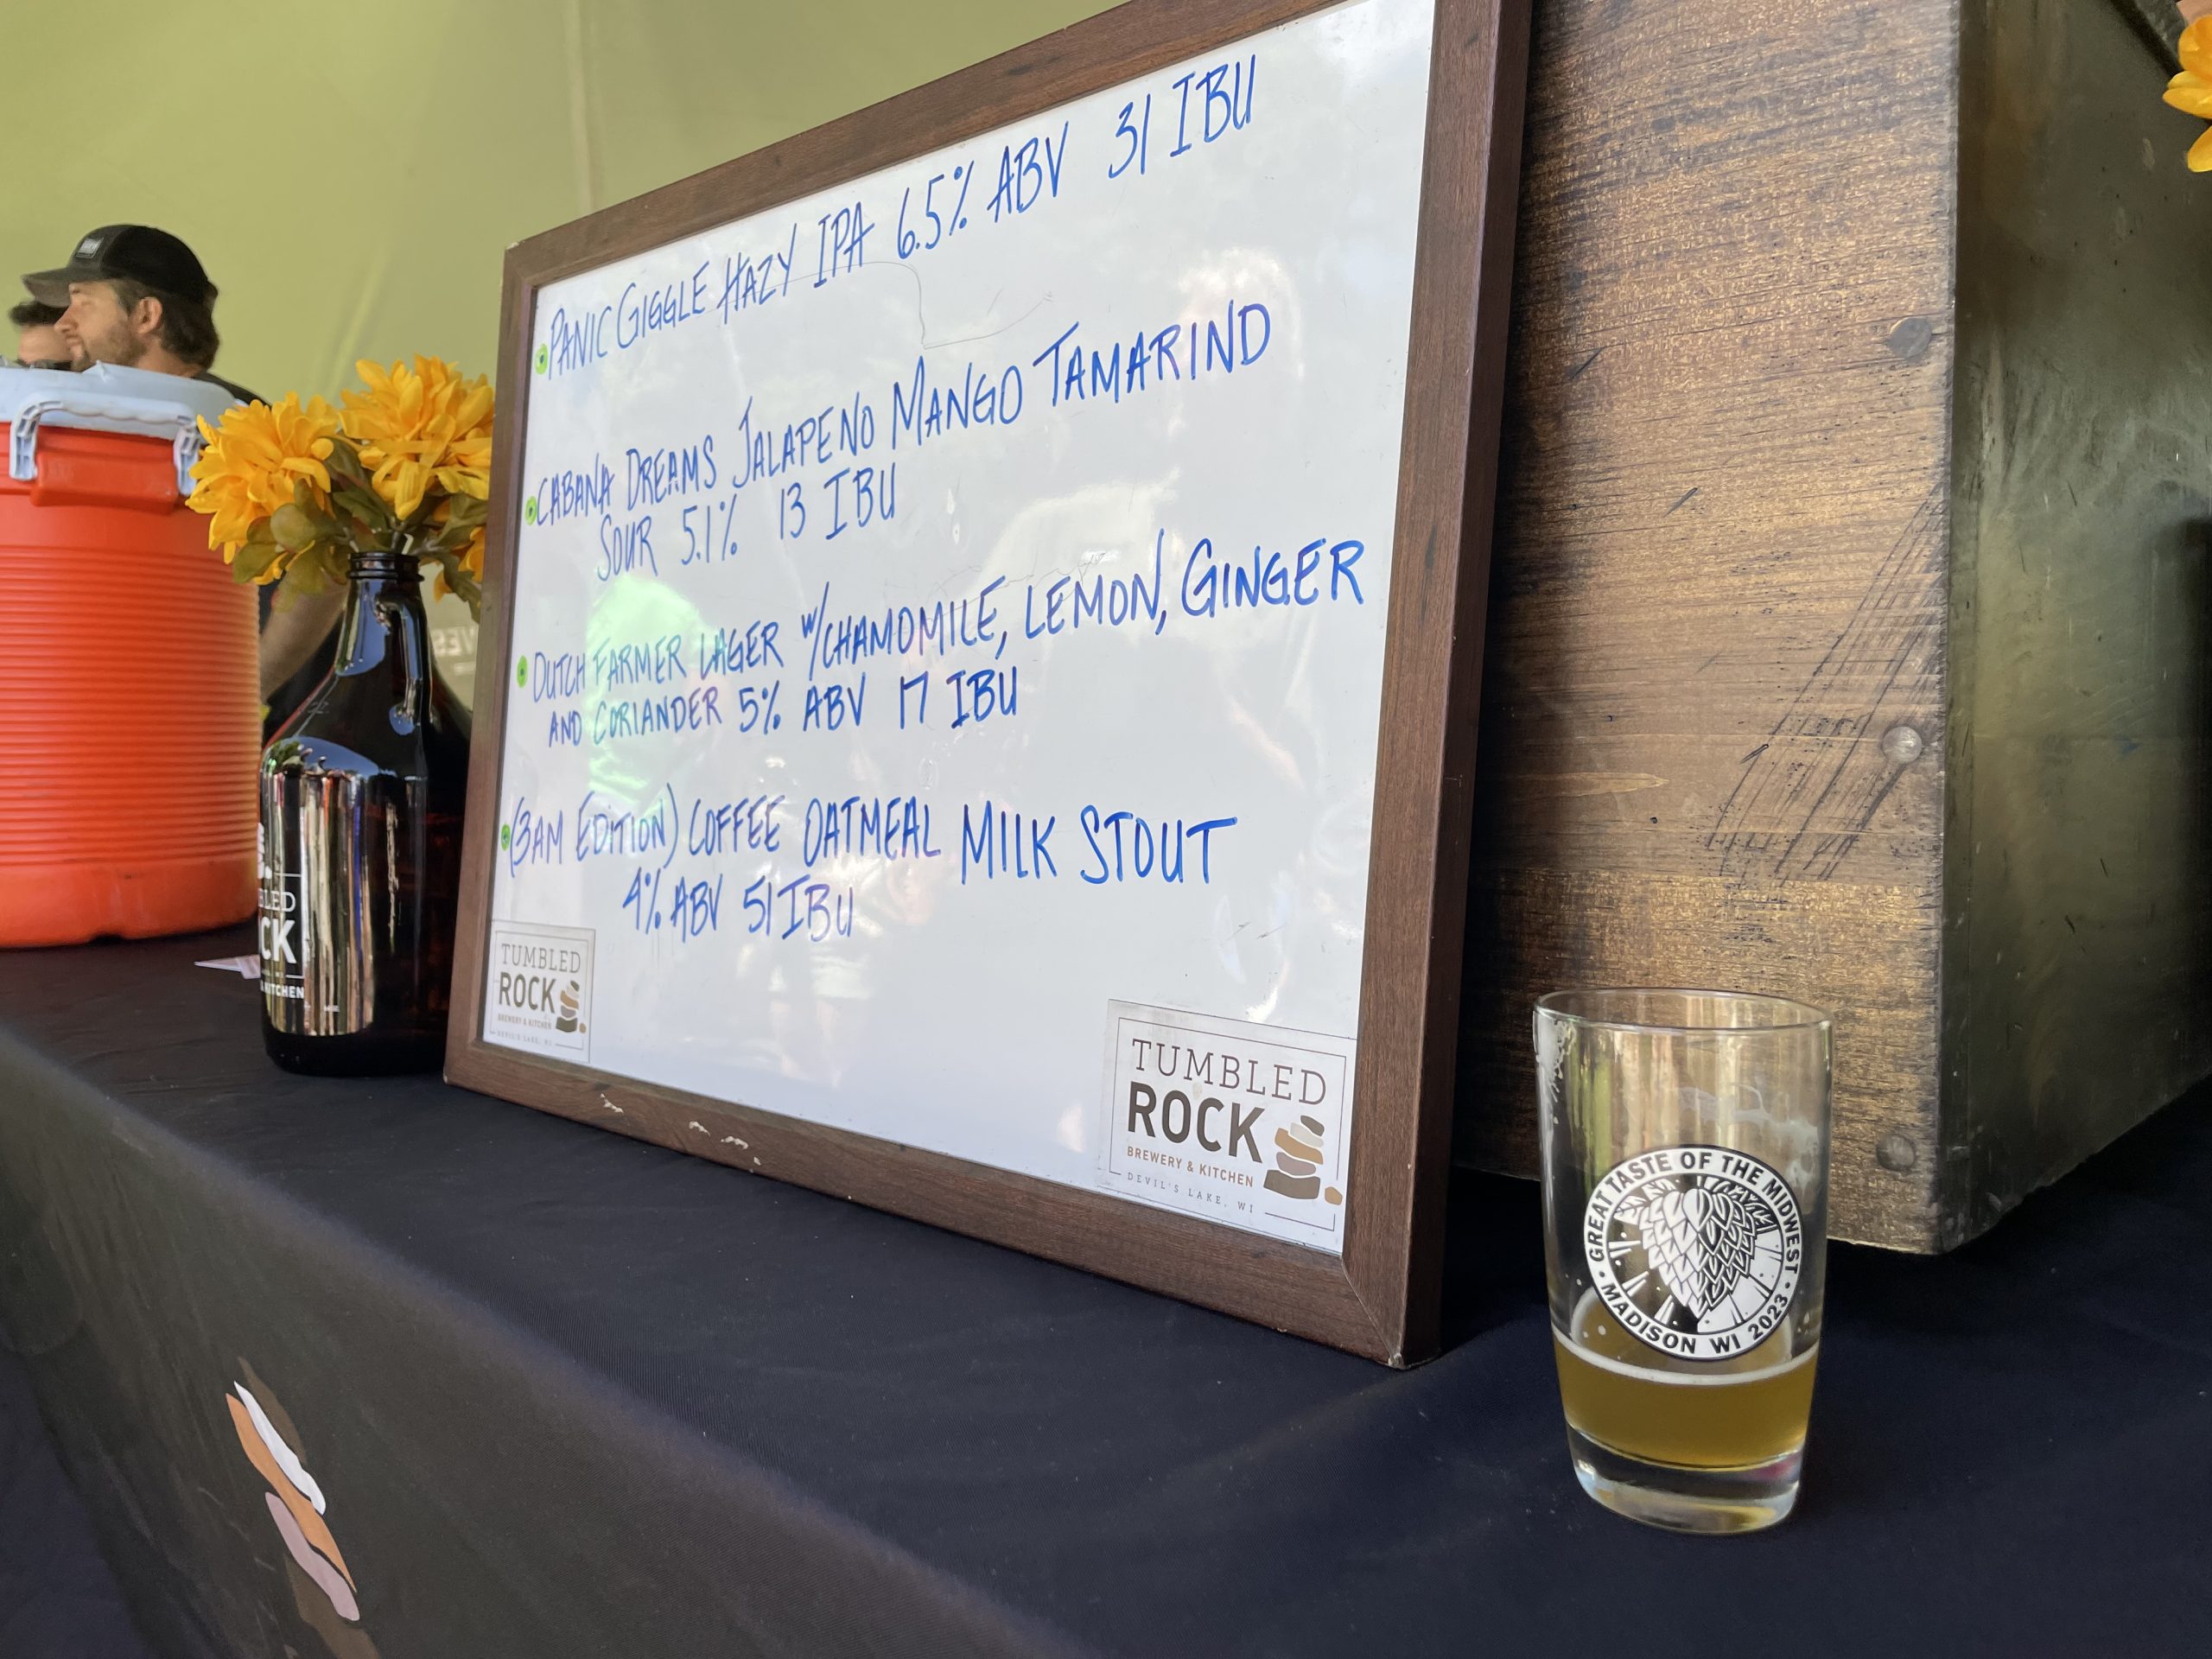 PANIC GIGGLE HAZY IPA 6.5% ABV 31 IBU
CABANA DREAMS JALAPENO MANGO TAMARIND
SOUR 5.1% 13 IBU
DUTCH FARMER LAGER W/CHAMOMILE, LEMON, GINGER
AND CORIANDER 5% ABV 17 IBU
(3AM EDITION) COFFEE OATMEAL MILK STOUT
4% ABV 51 IBU
TUMBLED
ROCK
BREWERY & KITCHEN
DEVIL'S LAKE, WI
TUMBLED
ROCK
BREWERY & KITCHEN
DEVIL'S LAKE, WI
BLED
CK
KITCHEN
GREAT TASTE OF THE MIDWEST
MADISON WI 2023